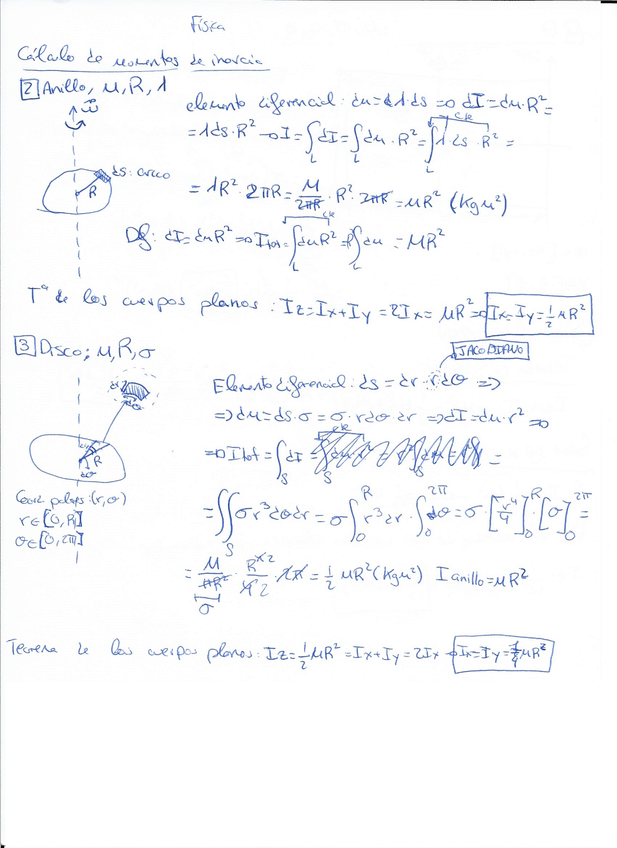 Física
Cálculo de momentos de inercia
2 Anillo, M, R, λ
elemento diferencial: dm = λ·ds ⇒ dI = dm·R² =
= λds·R² → I = ∫_L dI = ∫_L dm·R² = ∫_L λ ds·R² =
cte
ds: arco
R
= λR²·2πR = M/2πR · R²·2πR = MR² (Kgm²)
Def: dI = dmR² ⇒ Itot = ∫_L dmR² = R²∫_L dm = MR²
cte
Tª de los cuerpos planos: Iz = Ix + Iy = 2Ix = MR² ⇒ Ix = Iy = 1/2 MR²
3 Disco; M, R, σ
JACOBIANO
Elemento diferencial: ds = dr · rdθ ⇒
⇒ dm = ds·σ = σ·rdθ·dr ⇒ dI = dm·r² ⇒
⇒ Itot = ∫_S dI =
R
dθ
Coord. polares: (r, θ)
r∈[0,R]
θ∈[0,2π]
= ∬_S σr³dθdr = σ∫_0^R r³dr · ∫_0^2π dθ = σ·[r⁴/4]_0^R · [θ]_0^2π =
= M/πR² · R⁴/4 · 2π = 1/2 MR² (Kgm²) Ianillo = MR²
σ
Teorema de los cuerpos planos: Iz = 1/2 MR² = Ix + Iy = 2Ix → Ix = Iy = 1/4 MR²